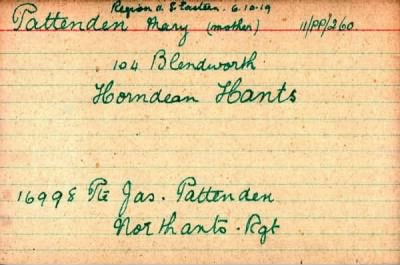 Region 2 S Eastern. 6.10.19
Pattenden Mary (mother) 11/PP/260.
104 Blendworth
Horndean Hants
16998 Pte Jas. Pattenden
Northants. Rgt